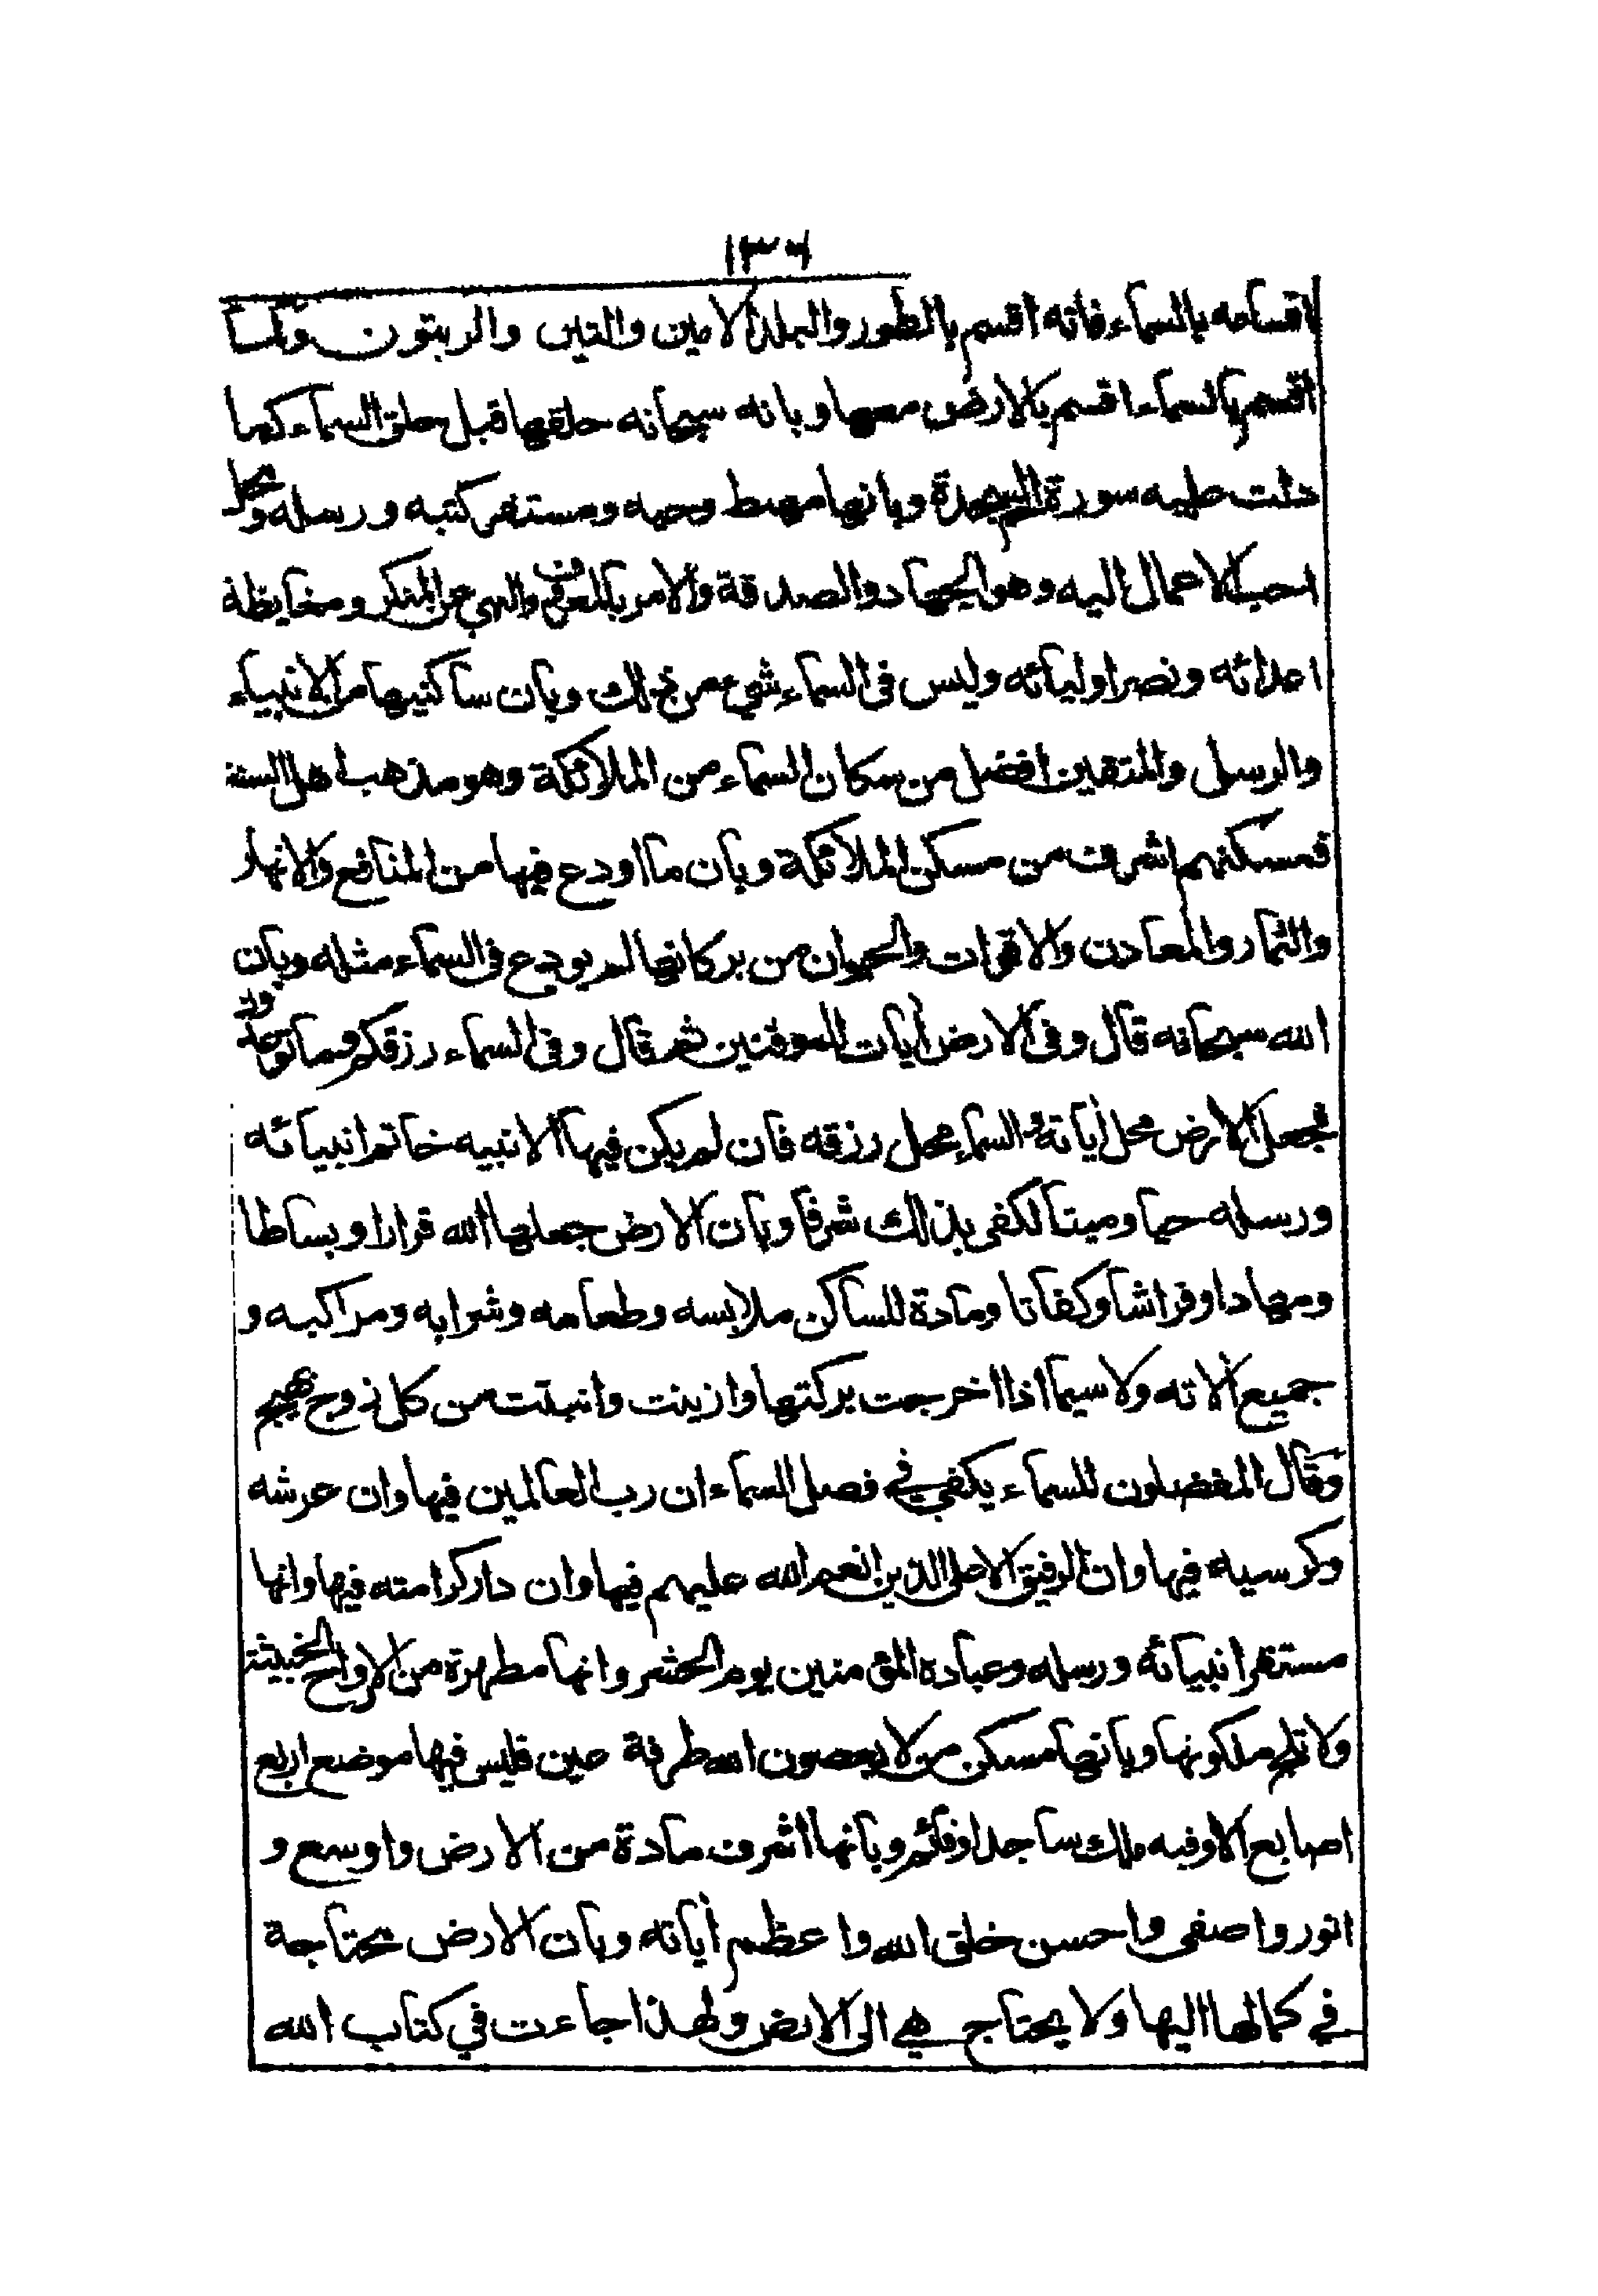 ١٣٦
اقسامه بالسماء فانه اقسم بالطور والبلد الامين والتين والزيتون ولما
اقسم بالسماء اقسم بالارض معها وبانه سبحانه خلقها قبل خلق السماء كما
دلت عليه سورة السجدة وبانها مهبط وحيه ومستقر كتبه ورسله ومحل
احب الاعمال اليه وهو الجهاد والصدقة والامر بالمعروف والنهي عن المنكر ومغايظة
اعدائه ونصر اوليائه وليس فى السماء شيء من ذلك وبان ساكنيها من الانبياء
والرسل والمتقين افضل من سكان السماء من الملائكة وهو مذهب اهل السنة
فمسكنهم اشرف من مسكن الملائكة وبان ما اودع فيها من المنافع والانهار
والثمار والمعادن والاقوات والحيوان من بركاتها لم يودع فى السماء مثله وبان
الله سبحانه قال وفى الارض أيات للموقنين ثم قال وفى السماء رزقكم وما توعدون
فجعل الارض محل أياته والسماء محل رزقه فان لم يكن فيها الا نبيه خاتم انبيائه
ورسله حيا وميتا لكفى بذلك شرفا وبان الارض جعلها الله قرارا وبساطا
ومهادا وفراشا وكفاتا ومادة للساكن ملابسه وطعامه وشرابه ومراكبه و
جميع ألاته ولا سيما اذا اخرجت بركتها وازينت وانبتت من كل زوج بهيج
وقال المفضلون للسماء يكفي في فضل السماء ان رب العالمين فيها وان عرشه
وكرسيه فيها وان الرفيق الاعلى الذين انعم الله عليهم فيها وان دار كرامته فيها وانها
مستقر انبيائه ورسله وعباده المؤمنين يوم الحشر وانها مطهرة من الارواح الخبيثة
ولا تلج ملكوتها وبانها مسكن من لا يعصون الله طرفة عين فليس فيها موضع اربع
اصابع الا وفيه ملك ساجد او قائم وبانها اشرف مادة من الارض واوسع و
انور واصفى واحسن خلق الله واعظم أياته وبان الارض محتاجة
في كمالها اليها ولا يحتاج هي الى الارض ولهذا جاءت في كتاب الله